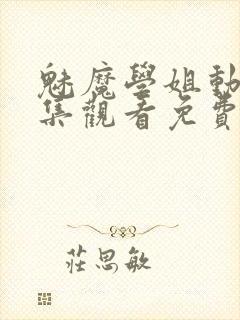 魅魔學姐動
集觀看免費
莊思敏